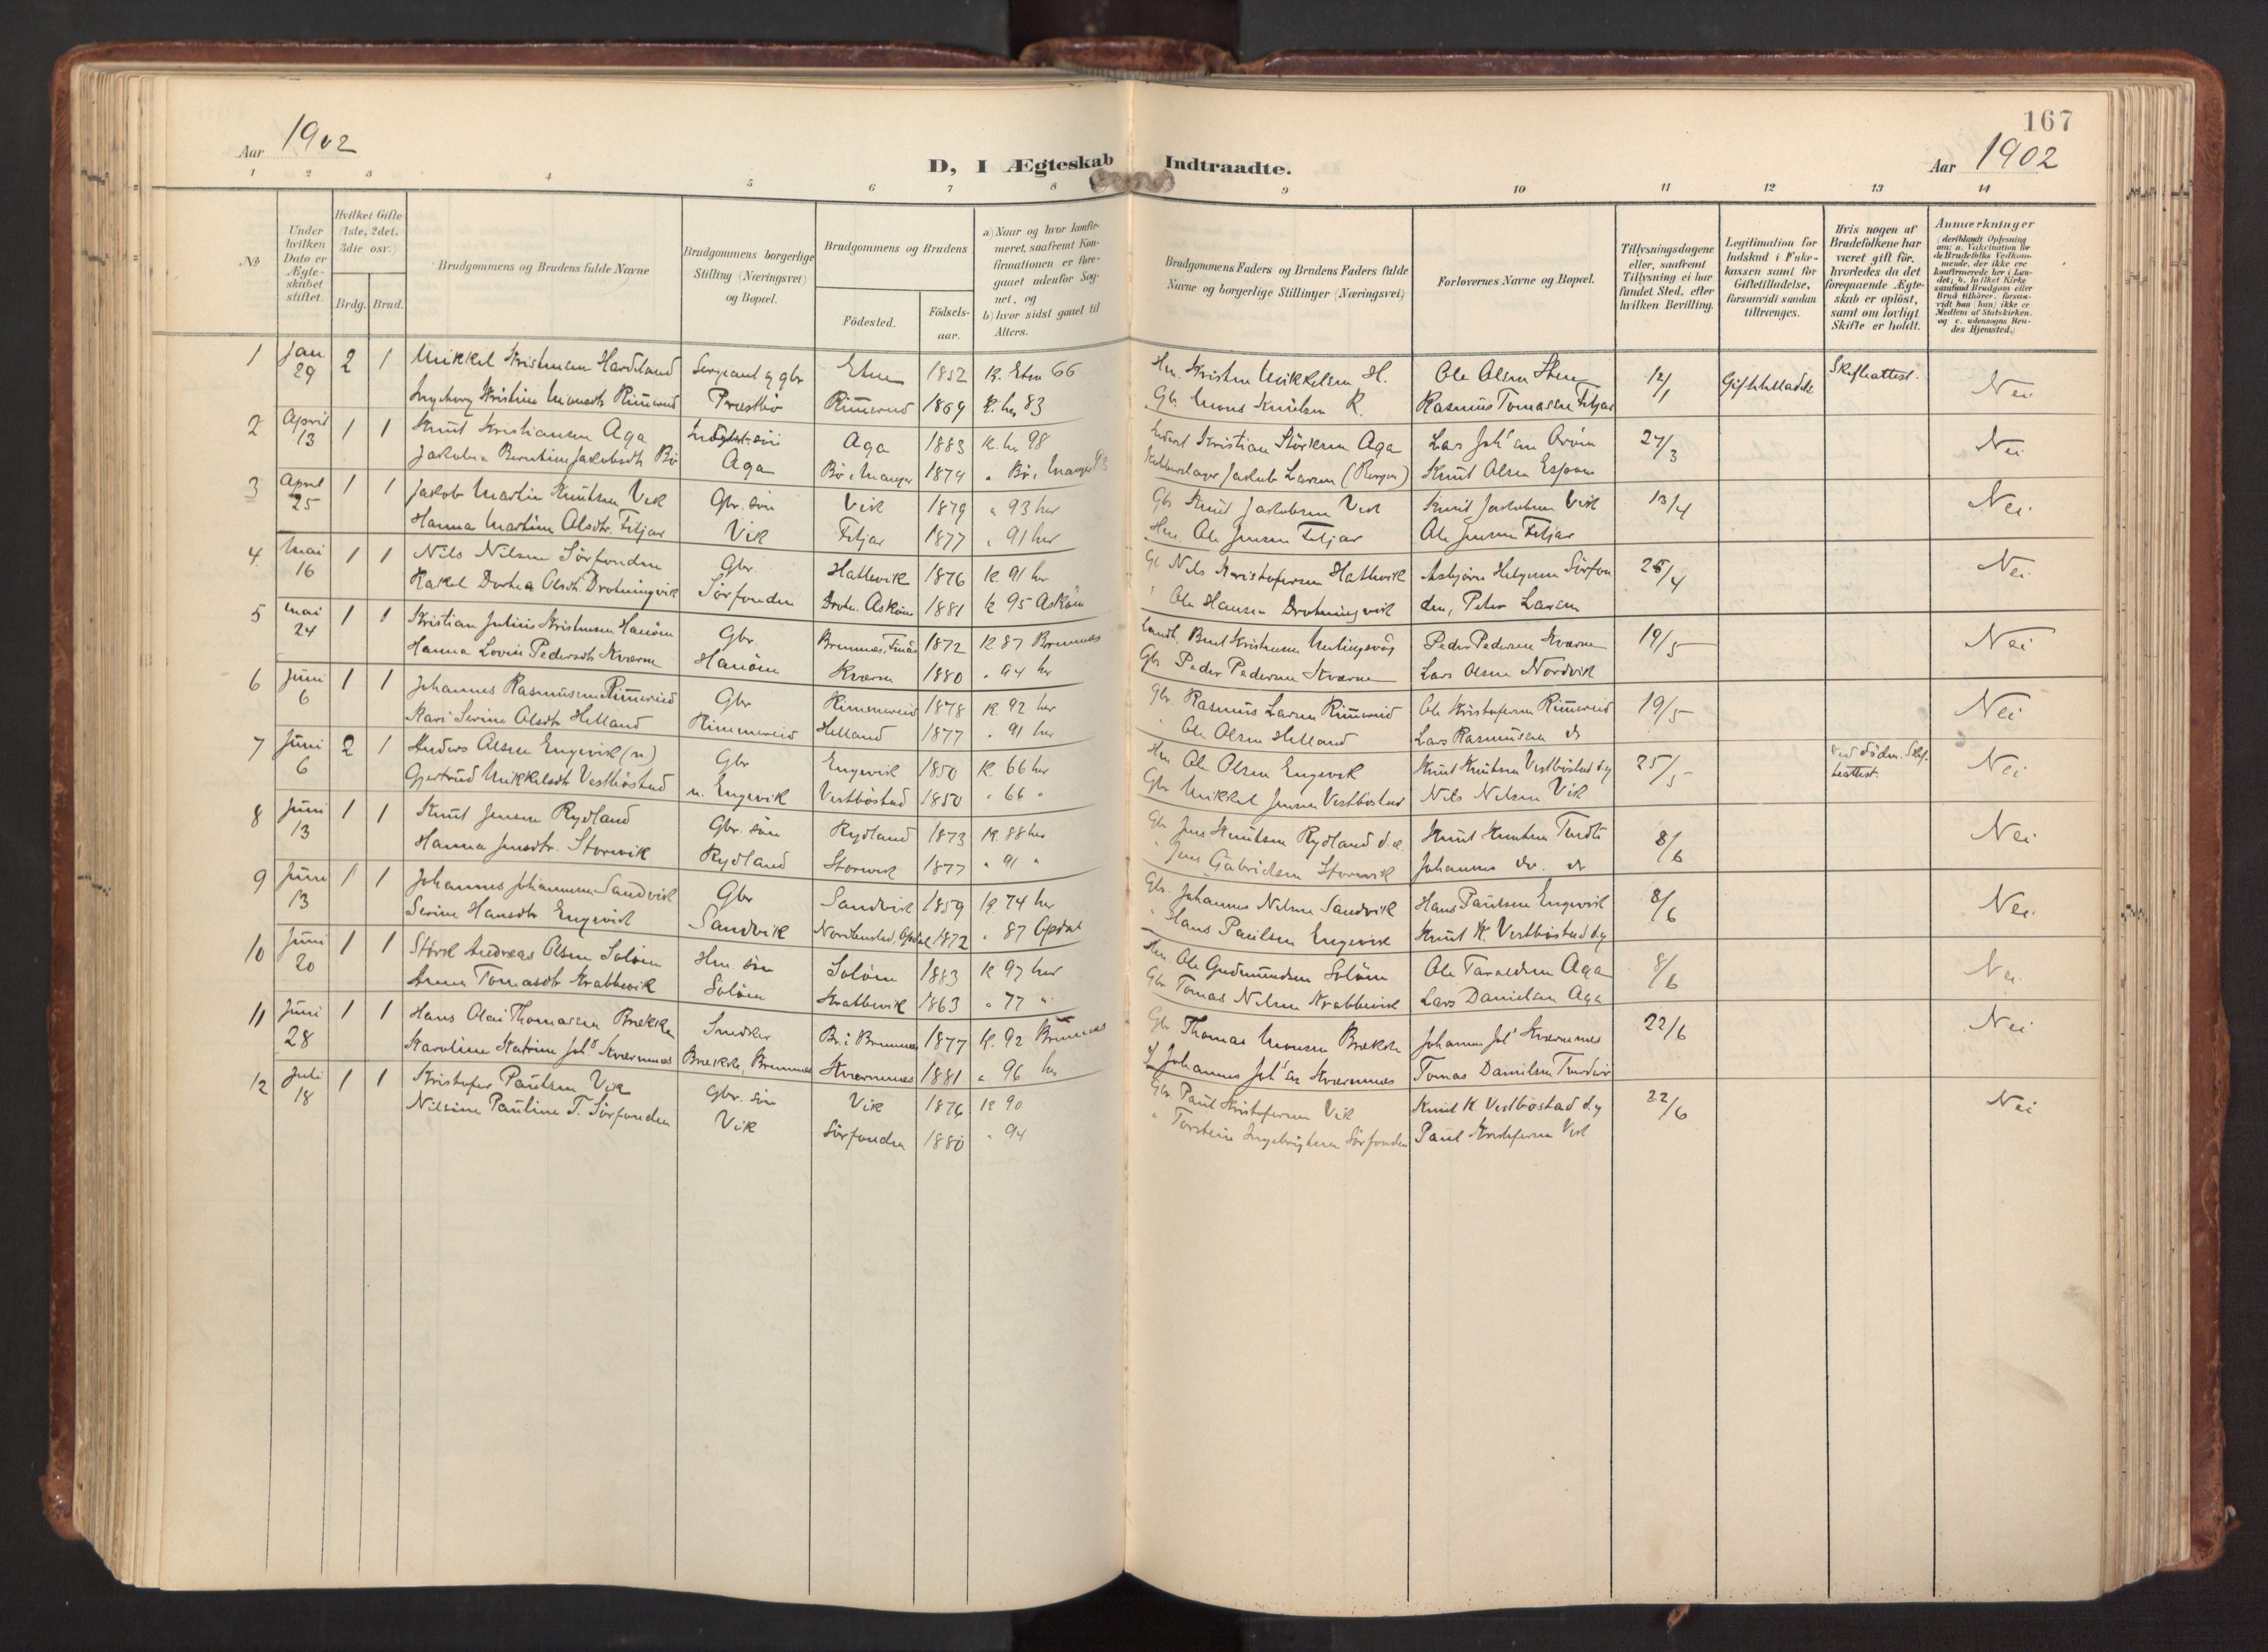 167
Aar 1902
D, I Ægteskab Indtraadte.
Aar 1902
1 2 3 4 5 6 7 8 9 10 11 12 13 14
№
Under hvilken Dato er Ægte-skabet stiftet.
Hvilket Gifte (1ste, 2det, 3die osv.)
Brdg. Brud.
Brudgommens og Brudens fulde Navne
Brudgommens borgerlige Stilling (Næringsvei) og Bopæl.
Brudgommens og Brudens
Födested.
Födsels-aar.
a) Naar og hvor konfir-meret, saafremt Kon-firmationen er fore-gaaet udenfor Sog-net, og
b) hvor sidst gaaet til Alters.
Brudgommens Faders og Brudens Faders fulde Navne og borgerlige Stillinger (Næringsvei)
Forlovernes Navne og Bopæl.
Tillysningsdagene eller, saafremt Tillysning ei har fundet Sted, efter hvilken Bevilling.
Legitimation for Indskud i Enke-kassen samt for Giftetilladelse, forsaavidt saadan tiltrænges.
Hvis nogen af Brudefolkene har været gift för, hvorledes da det foregaaende Ægte-skab er oplöst, samt om lovligt Skifte er holdt.
Anmærkninger
(deriblandt Oplysning om: a. Vakcination for de Brudefolks Vedkom-mende, der ikke ere konfirmerede her i Lan-det; b. hvilket Kirke-samfund Brudgom eller Brud tilhörer, forsaa-vidt han (hun) ikke er Medlem af Statskirken, og c. udensogns Bru-des Hjemsted.)
1 Jan 29 2 1 Mikkel Kristensen Hardeland Sergeant og gbr Etne 1852 K. Etne 66 Hm. Kristen Mikkelsen H. Ole Olsen 12/1 Giftetilladelse Skifteattest. Nei
Ingeborg Kristine Monsdtr Rimmereid Prestbø Rimmereid 1869 K. her 83 Gbr. Mons Knutsen R. Rasmus Tomassen Fitjar
2 April 13 1 1 Knut Kristiansen Aga Aga 1883 K. her 98 Kristian Störksen Aga Lars Joh's'en 27/3 Nei
Jakobia Berntine Jakobsdtr Bö Aga Bö i Manger 1874 " Bö i Manger 93 Jakob Larsen (Bergen) Knut Olsen
3 April 25 1 1 Jakob Martin Knutsen Vik Gbr. sön Vik 1879 " 93 her Gbr Knut Jakobsen Vik Knut Jakobsen Vik 13/4 Nei
Hanna Martine Olsdtr. Fitjar Vik Fitjar 1877 " 91 her Hm. Ole Jensen Fitjar Ole Jensen Fitjar
4 Mai 16 1 1 Nils Nilsen Sörfonden Gbr. Hattevik 1876 K. 91 her Nils Kristofersen Hattevik Asbjørn Helgesen Sörfon 25/4 Nei
Rakel Dorthea Olsdtr. Drotningvik Sörfonden Drotn. Asköen 1881 K 95 Asköen " Ole Hansen Drotningvik den, Peter Larsen
5 Mai 24 1 1 Kristian Julius Kristensen Hanöen Gbr. Bremnes, Finås 1872 K 87 Bremnes Bent Kristensen Peder Pedersen Kværne 19/5 Nei
Hanna Lovise Pedersdtr Kværne Hanöen Kværne 1880 " 94 her Gbr Peder Pedersen Kværne Lars Olsen Nordvik
6 Juni 6 1 1 Johannes Rasmussen Rimmereid Gbr Rimmereid 1878 K. 92 her Gbr Rasmus Larsen Rimmereid Ole Kristofersen Rimmereid 19/5 Nei
Kari Serine Olsdtr Helland Rimmereid Helland 1877 " 91 her " Ole Olsen Helland Lars Rasmussen do
7 Juni 6 2 1 Anders Olsen Engevik (n) Gbr Engevik 1850 K. 66 her Hm. Ole Olsen Engevik Knut Knutsen Vestbøstad d.y 25/5 Ved döden. Skif-teattest. Nei
Gjertrud Mikkelsdtr Vestbøstad n. Engevik Vestbøstad 1850 " 66 " Gbr Mikkel Jensen Vestbøstad Nils Nilsen Vik
8 Juni 13 1 1 Knut Jensen Rydland Gbr. sön Rydland 1873 K. 88 her Gbr Jens Knutsen Rydland d.e. Knut Knutsen 8/6 Nei
Hanna Jensdtr. Storevik Rydland Storevik 1877 " 91 " " Jens Gabrielsen Storevik Johannes do. do
9 Juni 13 1 1 Johannes Johannesen Sandvik Gbr Sandvik 1859 K. 74 her Gbr. Johannes Nilsen Sandvik Hans Paulsen Engevik 8/6 Nei
Serine Hansdtr Engevik Sandvik Nordbustad, Opdal 1872 " 87 Opdal " Hans Paulsen Engevik Knut K. Vestbøstad d.y
10 Juni 20 1 1 Störk Andreas Olsen Solöen Hm. sön Solöen 1883 K 97 her Hm. Ole Gudmundsen Solöen Ole Taraldsen Aga 8/6 Nei
Anna Tomasdtr Krabbevik Solöen Krabbevik 1863 " 77 " Gbr Tomas Nilsen Krabbevik Lars Danielsen Aga
11 Juni 28 1 1 Hans Olai Thomassen Brække Snedker Br. i Bremnes 1877 K. 92 Bremnes Gbr Thomas Monsen Brække Johannes Joh' Kværnenes 22/6 Nei
Karoline Katrine Joh's Kværnenes Brække, Bremnes Kværnenes 1881 " 96 her Johannes Joh'sen Kværnenes Tomas Danielsen
12 Juli 18 1 1 Kristofer Paulsen Vik Gbr. sön Vik 1876 K 90 Gbr. Paul Kristofersen Vik Knut K. Vestbøstad d.y 22/6 Nei
Nilsine Pauline T. Sörfonden Vik Sörfonden 1880 " 94 " Torstein Ingebrigtsen Sörfonden Paul Kristofersen Vik